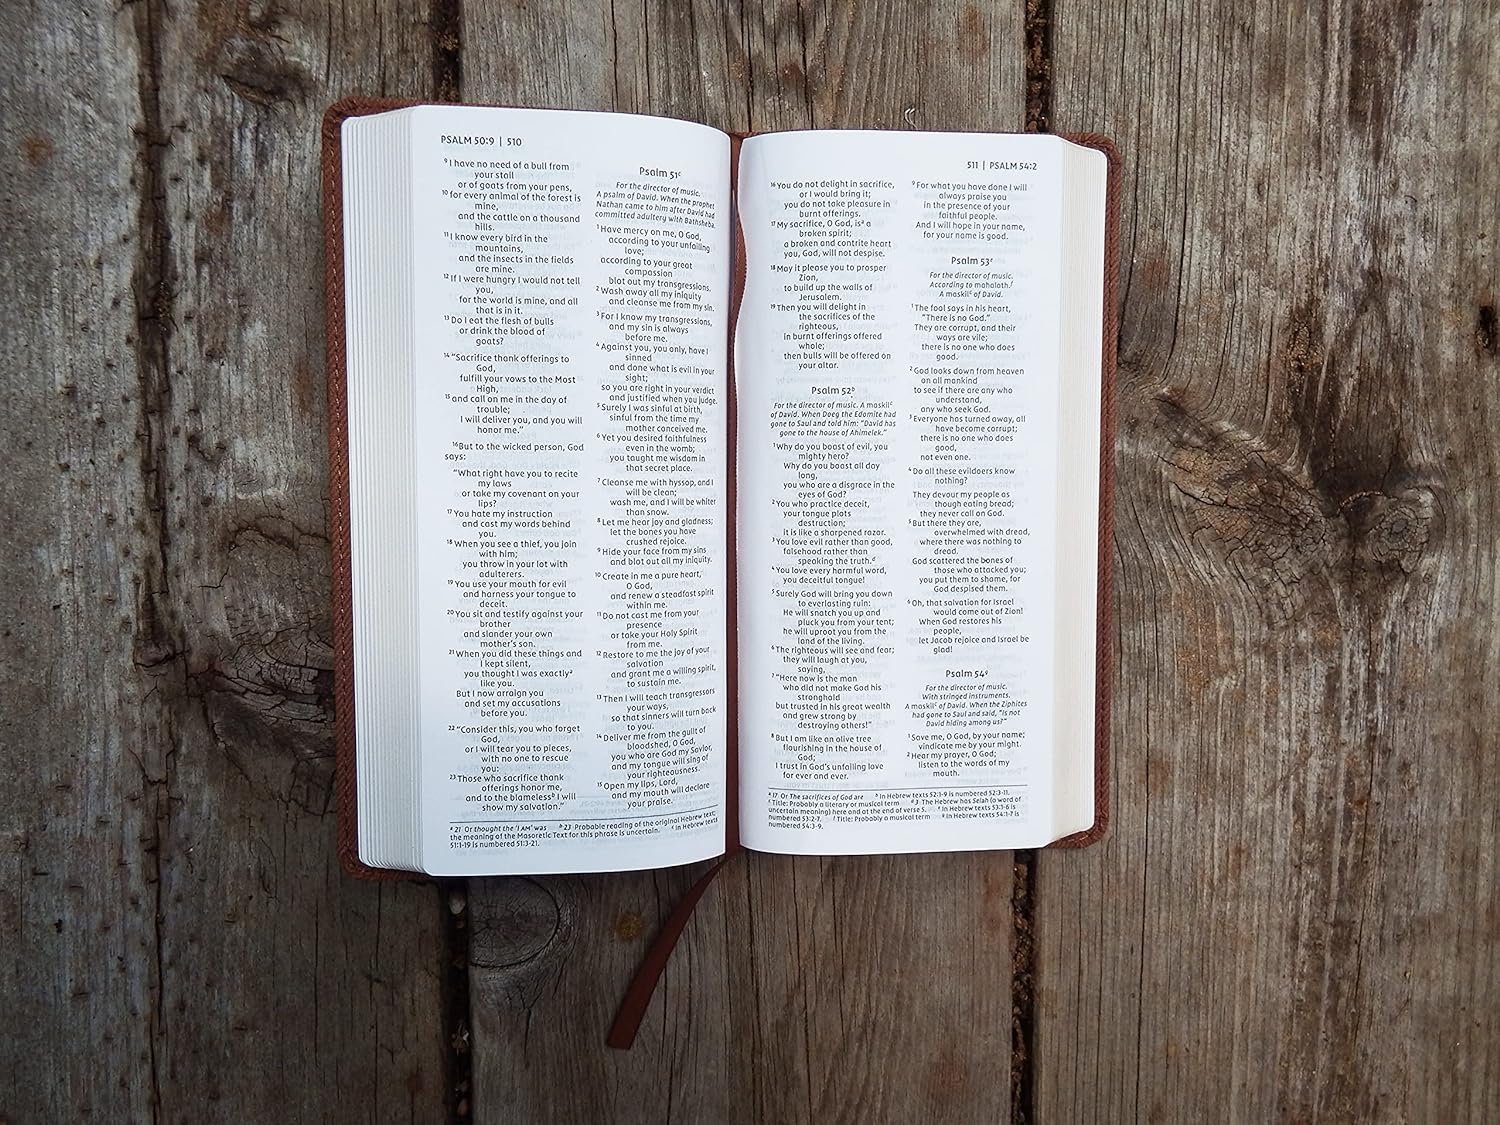 PSALM 50:9 | 510
9 I have no need of a bull from
your stall
or of goats from your pens,
10 for every animal of the forest is
mine,
and the cattle on a thousand
hills.
11 I know every bird in the
mountains,
and the insects in the fields
are mine.
12 If I were hungry I would not tell
you,
for the world is mine, and all
that is in it.
13 Do I eat the flesh of bulls
or drink the blood of
goats?
14 “Sacrifice thank offerings to
God,
fulfill your vows to the Most
High,
15 and call on me in the day of
trouble;
I will deliver you, and you will
honor me.”
16 But to the wicked person, God
says:
“What right have you to recite
my laws
or take my covenant on your
lips?
17 You hate my instruction
and cast my words behind
you.
18 When you see a thief, you join
with him;
you throw in your lot with
adulterers.
19 You use your mouth for evil
and harness your tongue to
deceit.
20 You sit and testify against your
brother
and slander your own
mother's son.
21 When you did these things and
I kept silent,
you thought I was exactly a
like you.
But I now arraign you
and set my accusations
before you.
22 “Consider this, you who forget
God,
or I will tear you to pieces,
with no one to rescue
you:
23 Those who sacrifice thank
offerings honor me,
and to the blameless b I will
show my salvation.”
Psalm 51 c
For the director of music.
A psalm of David. When the prophet
Nathan came to him after David had
committed adultery with Bathsheba.
1 Have mercy on me, O God,
according to your unfailing
love;
according to your great
compassion
blot out my transgressions.
2 Wash away all my iniquity
and cleanse me from my sin.
3 For I know my transgressions,
and my sin is always
before me.
4 Against you, you only, have I
sinned
and done what is evil in your
sight;
so you are right in your verdict
and justified when you judge.
5 Surely I was sinful at birth,
sinful from the time my
mother conceived me.
6 Yet you desired faithfulness
even in the womb;
you taught me wisdom in
that secret place.
7 Cleanse me with hyssop, and I
will be clean;
wash me, and I will be whiter
than snow.
8 Let me hear joy and gladness;
let the bones you have
crushed rejoice.
9 Hide your face from my sins
and blot out all my iniquity.
10 Create in me a pure heart,
O God,
and renew a steadfast spirit
within me.
11 Do not cast me from your
presence
or take your Holy Spirit
from me.
12 Restore to me the joy of your
salvation
and grant me a willing spirit,
to sustain me.
13 Then I will teach transgressors
your ways,
so that sinners will turn back
to you.
14 Deliver me from the guilt of
bloodshed, O God,
you who are God my Savior,
and my tongue will sing of
your righteousness.
15 Open my lips, Lord,
and my mouth will declare
your praise.
a 21 Or thought the ‘I AM’ was b 23 Probable reading of the original Hebrew text;
the meaning of the Masoretic Text for this phrase is uncertain. c In Hebrew texts
51:1-19 is numbered 51:3-21.
511 | PSALM 54:2
16 You do not delight in sacrifice,
or I would bring it;
you do not take pleasure in
burnt offerings.
17 My sacrifice, O God, is a a
broken spirit;
a broken and contrite heart
you, God, will not despise.
18 May it please you to prosper
Zion,
to build up the walls of
Jerusalem.
19 Then you will delight in
the sacrifices of the
righteous,
in burnt offerings offered
whole;
then bulls will be offered on
your altar.
Psalm 52 b
For the director of music. A maskil c
of David. When Doeg the Edomite had
gone to Saul and told him: “David has
gone to the house of Ahimelek.”
1 Why do you boast of evil, you
mighty hero?
Why do you boast all day
long,
you who are a disgrace in the
eyes of God?
2 You who practice deceit,
your tongue plots
destruction;
it is like a sharpened razor.
3 You love evil rather than good,
falsehood rather than
speaking the truth. d
4 You love every harmful word,
you deceitful tongue!
5 Surely God will bring you down
to everlasting ruin:
He will snatch you up and
pluck you from your tent;
he will uproot you from the
land of the living.
6 The righteous will see and fear;
they will laugh at you,
saying,
7 “Here now is the man
who did not make God his
stronghold
but trusted in his great wealth
and grew strong by
destroying others!”
8 But I am like an olive tree
flourishing in the house of
God;
I trust in God's unfailing love
for ever and ever.
9 For what you have done I will
always praise you
in the presence of your
faithful people.
And I will hope in your name,
for your name is good.
Psalm 53 e
For the director of music.
According to mahalath. f
A maskil c of David.
1 The fool says in his heart,
“There is no God.”
They are corrupt, and their
ways are vile;
there is no one who does
good.
2 God looks down from heaven
on all mankind
to see if there are any who
understand,
any who seek God.
3 Everyone has turned away, all
have become corrupt;
there is no one who does
good,
not even one.
4 Do all these evildoers know
nothing?
They devour my people as
though eating bread;
they never call on God.
5 But there they are,
overwhelmed with dread,
where there was nothing to
dread.
God scattered the bones of
those who attacked you;
you put them to shame, for
God despised them.
6 Oh, that salvation for Israel
would come out of Zion!
When God restores his
people,
let Jacob rejoice and Israel be
glad!
Psalm 54 g
For the director of music.
With stringed instruments.
A maskil c of David. When the Ziphites
had gone to Saul and said, “Is not
David hiding among us?”
1 Save me, O God, by your name;
vindicate me by your might.
2 Hear my prayer, O God;
listen to the words of my
mouth.
a 17 Or The sacrifices of God are b In Hebrew texts 52:1-9 is numbered 52:3-11.
c Title: Probably a literary or musical term d 3 The Hebrew has Selah (a word of
uncertain meaning) here and at the end of verse 5. e In Hebrew texts 53:1-6 is
numbered 53:2-7. f Title: Probably a musical term g In Hebrew texts 54:1-7 is
numbered 54:3-9.